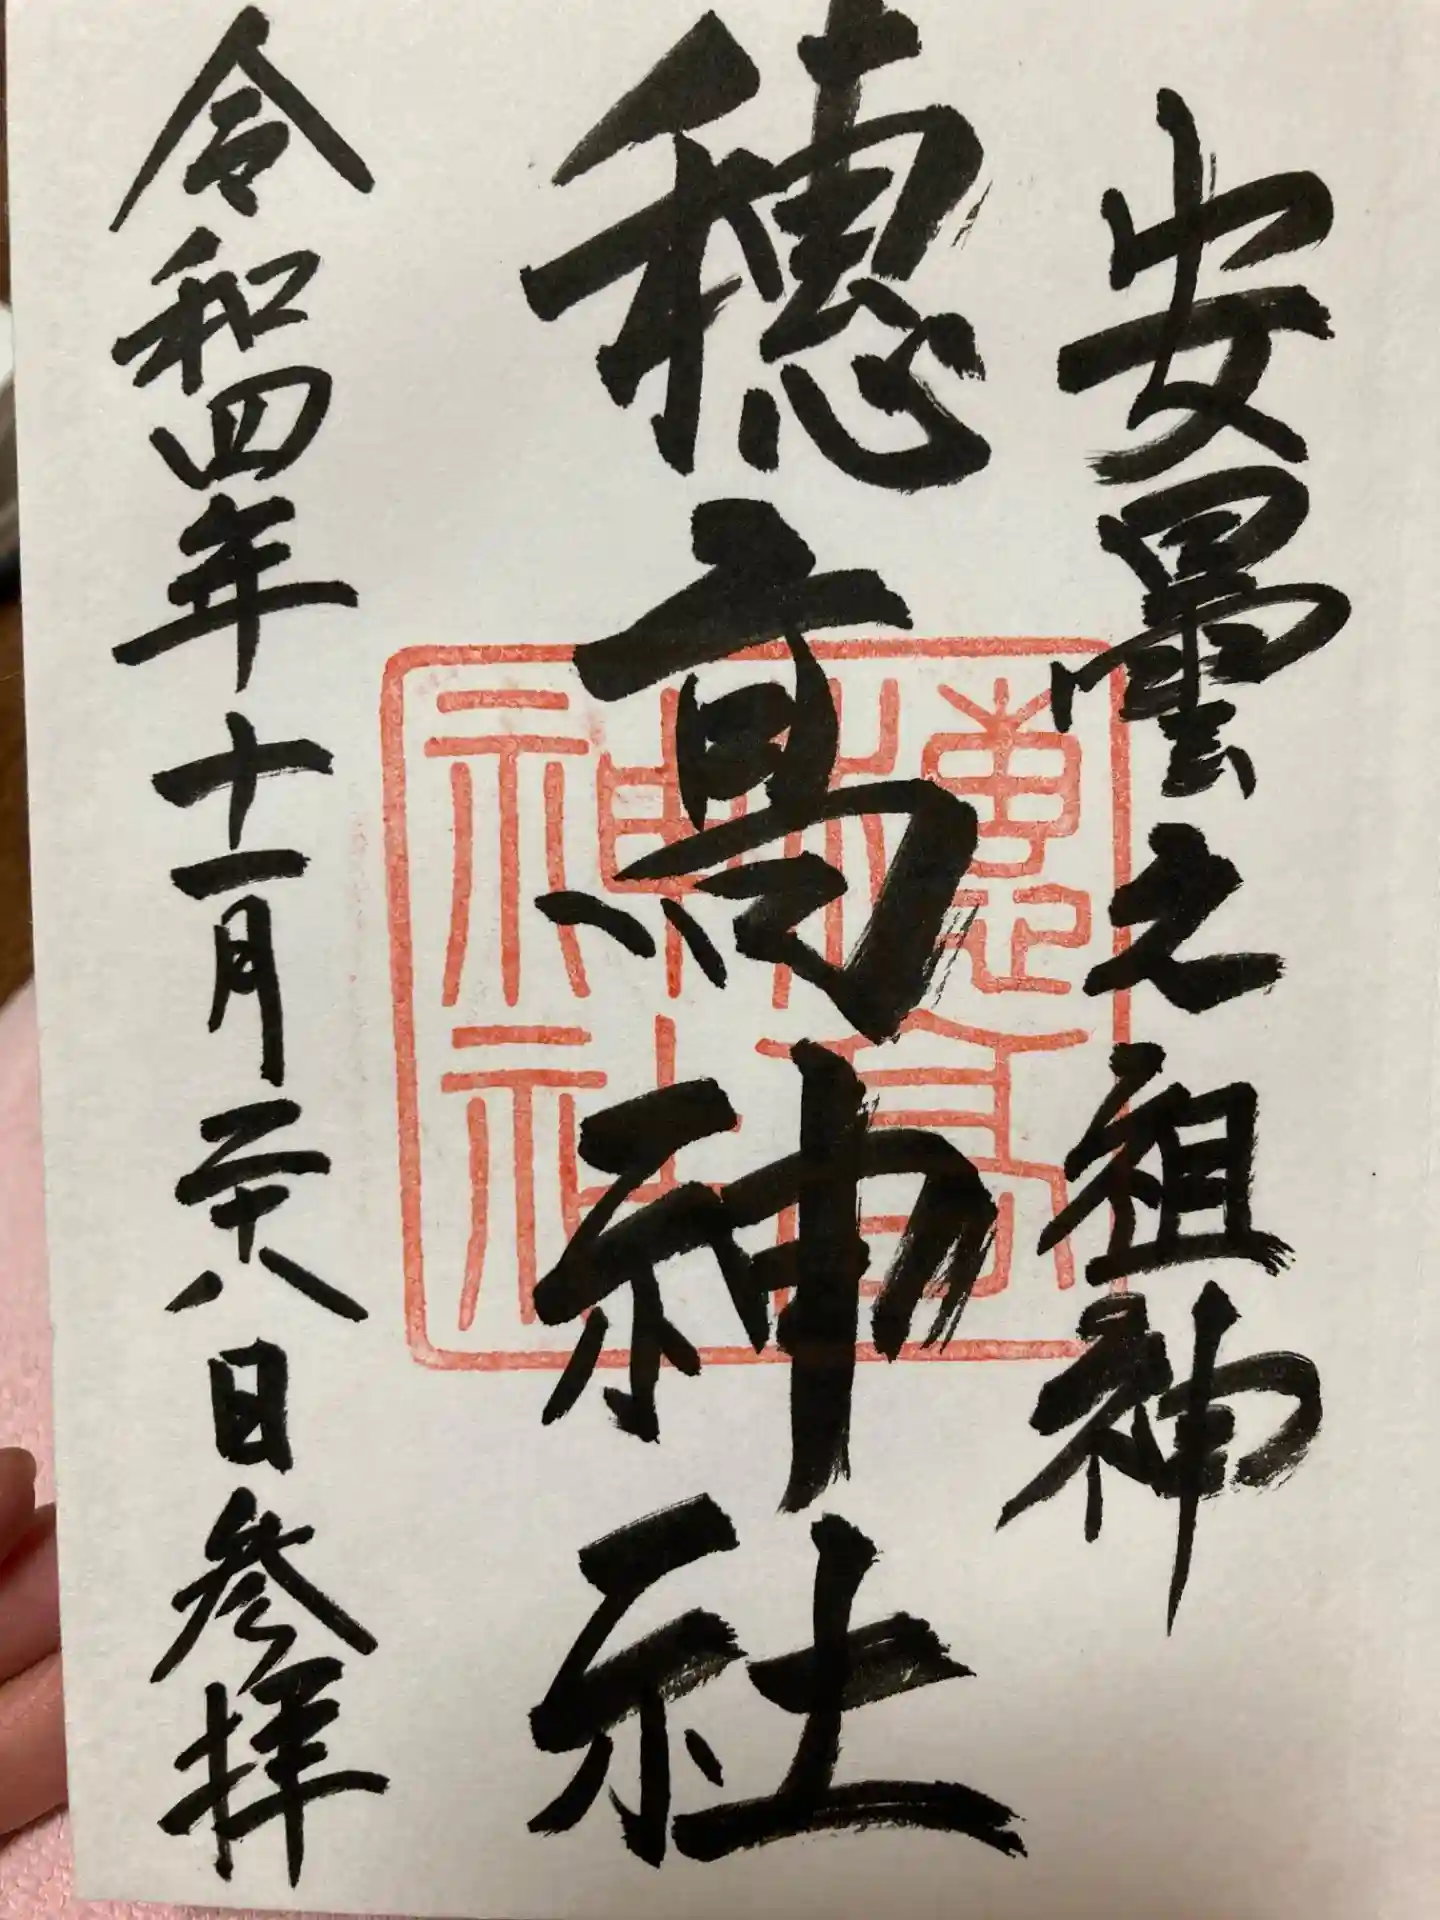 安曇之祖神
穂高神社
穂高
神社
令和四年十一月二十八日参拝